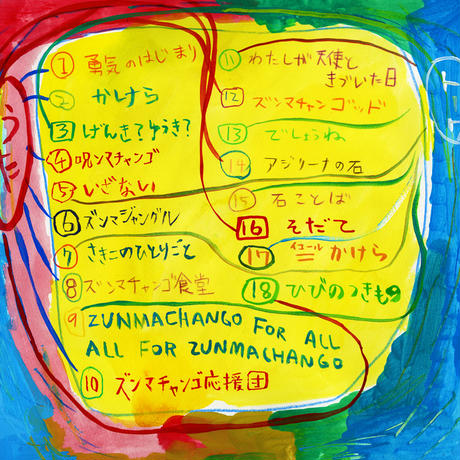 うた
① 勇気のはじまり
② かけら
③ げんき?ゆうき?
④ 呪ンマチャンゴ
⑤ いざない
⑥ ズンマジャングル
⑦ さきこのひとりごと
⑧ ズンマチャンゴ食堂
⑨ ZUNMACHANGO FOR ALL
ALL FOR ZUNMACHANGO
⑩ ズンマチャンゴ応援団
⑪ わたしが天使と
きづいた日
⑫ ズンマチャンゴッド
⑬ でしょうね
⑭ アジリーナの石
⑮ 石ことば
⑯ そだて
⑰ イコール
= かけら
⑱ ひびのつきもの